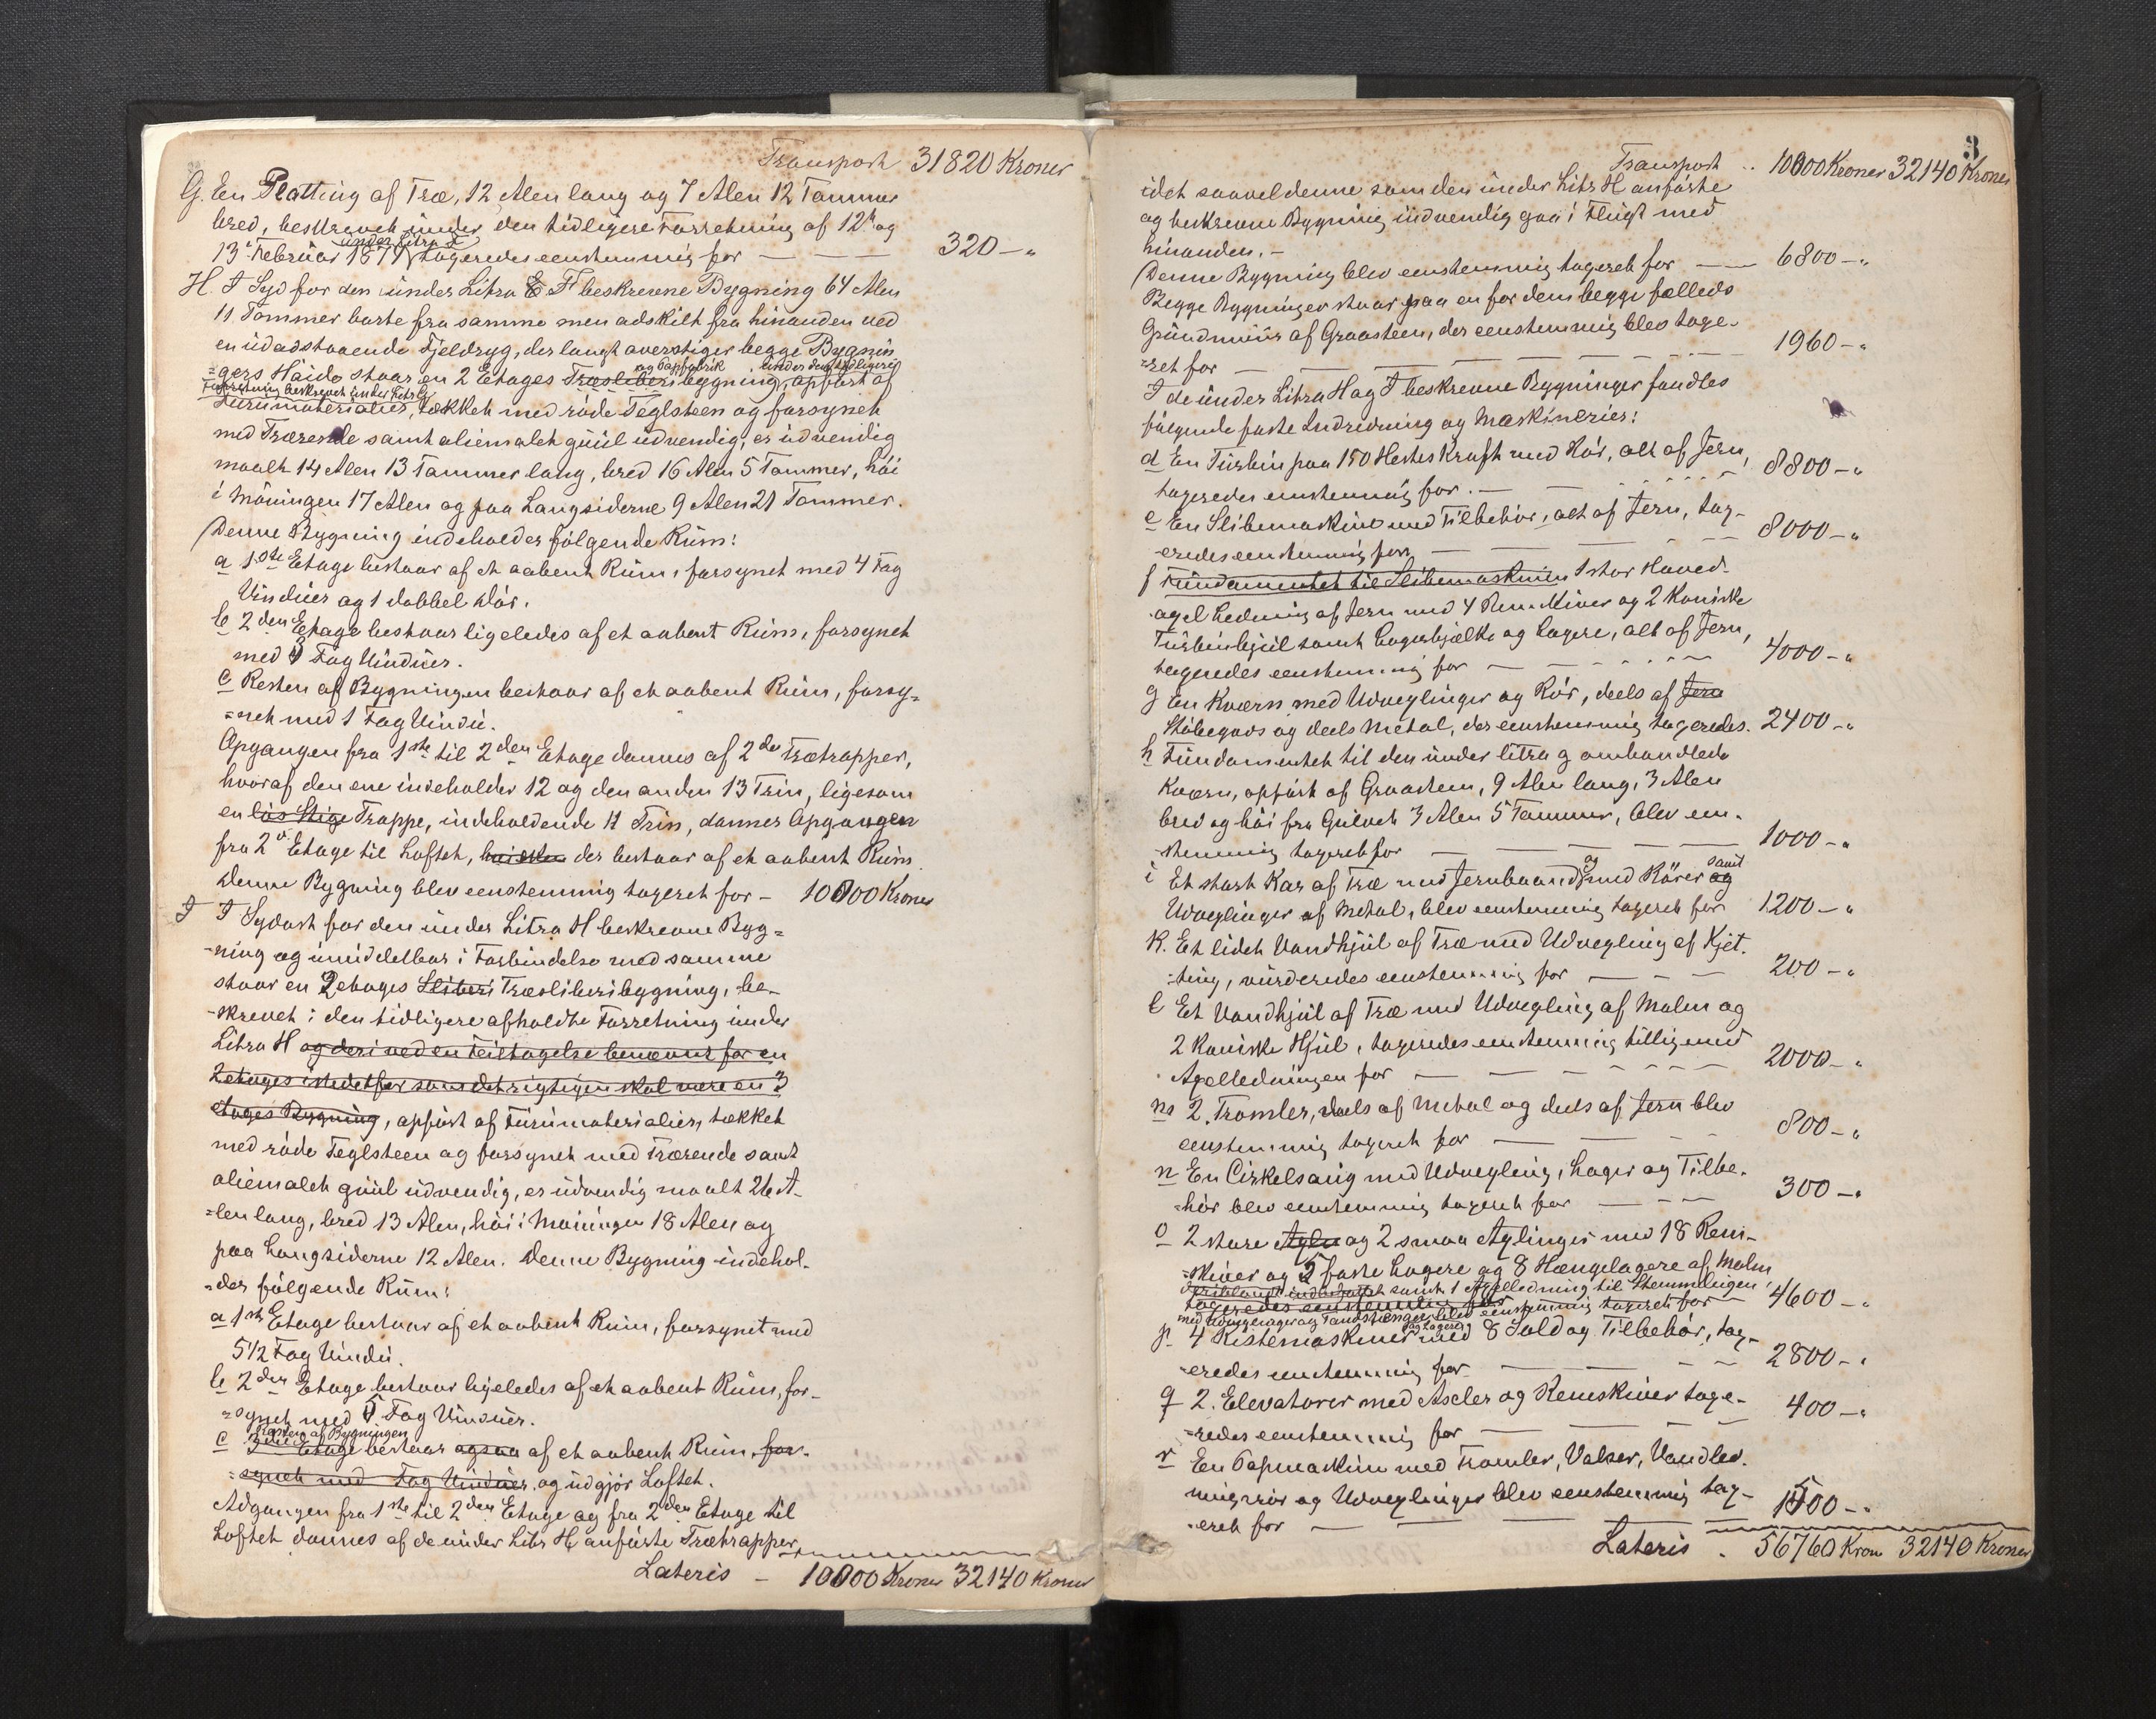 Transport 31820 Kroner
G. En Platting af Træ, 12 Alen lang og 7 Alen 12 Tommer
bred, beskrevet under den tidligere Forretning af 12te og
under Litra F
13de Februar 1871, taxeredes eenstemmig for — — — 320 - "
H. I Syd for den under Litra E F beskrevne Bygning 64 Alen
11 Tommer borte fra samme men adskilt fra hinanden ved
en udadstaaende Fjeldryg, der langt overstiger begge Bygnin
og Papfabrik under den tidligere
=gers Høide staar en 2 Etages Træsliberibygning, opført af
Forretning beskrevet under Litr G
Furumaterialier, tækket med röde Teglsteen og forsynet
med Trærende samt oliemalet guul udvendig, er udvendig
maalt 14 Alen 13 Tommer lang, bred 16 Alen 5 Tommer, höi
i Möningen 17 Alen og paa Langsiderne 9 Alen 21 Tommer.
Denne Bygning indeholder fölgende Rum:
a 1ste Etage bestaar af et aabent Rum, forsynet med 4 Fag
Vinduer og 1 dobbel Dör.
b 2den Etage bestaar ligeledes af et aabent Rum, forsynet
med Fag Vinduer.
c Resten af Bygningen bestaar af et aabent Rum, forsy=
=net med 1 Fag Vindu.
Opgangen fra 1ste til 2den Etage dannes af 2de Trætrapper,
hvoraf den ene indeholder 12 og den anden 13 Trin, ligesom
en lös Stige Trappe, indeholdende 11 Trin, danner Opgangen
fra 2den Etage til Loftet, der bestaar af et aabent Rum
Denne Bygning blev eenstemmig taxeret for - 10000 Kroner
I I Sydost for den under Litra H beskrevne Byg=
=ning og umiddelbar i Forbindelse med samme
staar en 2 etages Sliberi Træsliberibygning, be-
-skrevet i den tidligere afholdte Forretning under
Litra H og deri ved en Feiltagelse benævnt for en
2 etages istedetfor som det rigtigen skal være en 3
etages Bygning, opfört af Furumaterialier, tækket
med röde Teglsteen og forsynet med Trærende samt
oliemalet guul udvendig, er udvendig maalt 26 A-
=len lang, bred 13 Alen, höi i Möningen 18 Alen og
paa Langsiderne 12 Alen. Denne Bygning indehol-
=der fölgende Rum:
a 1ste Etage bestaar af et aabent Rum, forsynet med
5 1/2 Fag Vindu.
b 2den Etage bestaar ligeledes af et aabent Rum, for-
=synet med 5 Fag Vinduer.
Resten af Bygningen
c 3die Etage bestaar ogsaa af et aabent Rum, for-
=synet med Fag Vinduer, og udgjör Loftet.
Adgangen fra 1ste til 2den Etage og fra 2den Etage til
Loftet dannes af de under Litr H anförte Trætrapper,
Lateris - 10000 Kroner 32140 Kroner
3
Transport .. 10000 Kroner 32140 Kroner
idet saavel denne som den under Litr H anförte
og beskrevne Bygning udvendig gaa i Flugt med
hinanden. -
Denne Bygning blev eenstemmig taxeret for — 6800 - "
Begge Bygninger staar paa en for dem begge fælleds
Grundmuur af Graasteen, der eenstemmig blev taxe-
=ret for — — — — 1960 - "
I de under Litra H og I beskrevne Bygninger fandtes
fölgende faste Indredning og Maskinerier:
d En Turbin paa 150 Hestes Kraft med Rör, alt af Jern,
taxeredes eenstemmig for. — 8800 - "
e En Slibemaskine med Tilbehör, alt af Jern, tax-
-eredes eenstemmig for — 8000 - "
f Fundamentet til Slibemaskinen 1 stor Hoved-
-axel Ledning af Jern med 4 Remskiver og 2 Koniske
Turbinhjul samt Lagerbjælke og Lagere, alt af Jern,
taxeredes eenstemmig for — 4000 - "
g En Kværn med Udvexlinger og Rör, deels af Jern
Stöbegods og deels Metal, der eenstemmig taxeredes. 2400 - "
h Fundamentet til den under litra g omhandlede
Kværn, opfört af Graasteen, 9 Alen lang, 3 Alen
bred og höi fra Gulvet 3 Alen 5 Tommer, blev een-
-stemmig taxeret for — — — — 1000 - "
og samt
i Et stort Kar af Træ med Jernbaand med Rörer og
Udvexlinger af Metal, blev eenstemmig taxeret for 1200 - "
k. Et lidet Vandhjul af Træ med Udvexling af Kjet-
-ting, vurderedes eenstemmig for — — — 200 - "
l Et Vandhjul af Træ med Udvexling af Malm og
2 Koniske Hjul, taxeredes eenstemmig tilligemed
Axelledningen for — — — 2000 - "
m 2. Tromler, deels af Metal og deels af Jern blev
eenstemmig taxeret for — — 800 - "
n En Cirkelsaug med Udvexling, Lager og Tilbe-
-hör blev eenstemmig taxeret for — — — 300 - "
o 2 store Axler og 2 smaa Axlinger med 18 Rem-
-skiver og 5 faste Lagere og 8 Hængelagere af Malm
samt 1 Axelledning til Stemmlingen
taxeredes eenstemmig for 4600 - "
med Tandstænger blev eenstemmig taxeret for
og Lagere
p. 4 Ristemaskiner med 8 Sold og Tilbehör, tax-
-eredes eenstemmig for — — — 2800 - "
q 2. Elevatorer med Axeler og Remskiver taxe-
=redes eenstemmig for — — 400 - "
r En Papmaskine med Tromler, Valser, Vandled-
ningsrör og Udvexlinger blev eenstemmig tax-
-eret for — — — — 1500 - "
Lateris . 56760 Kron 32140 Kroner